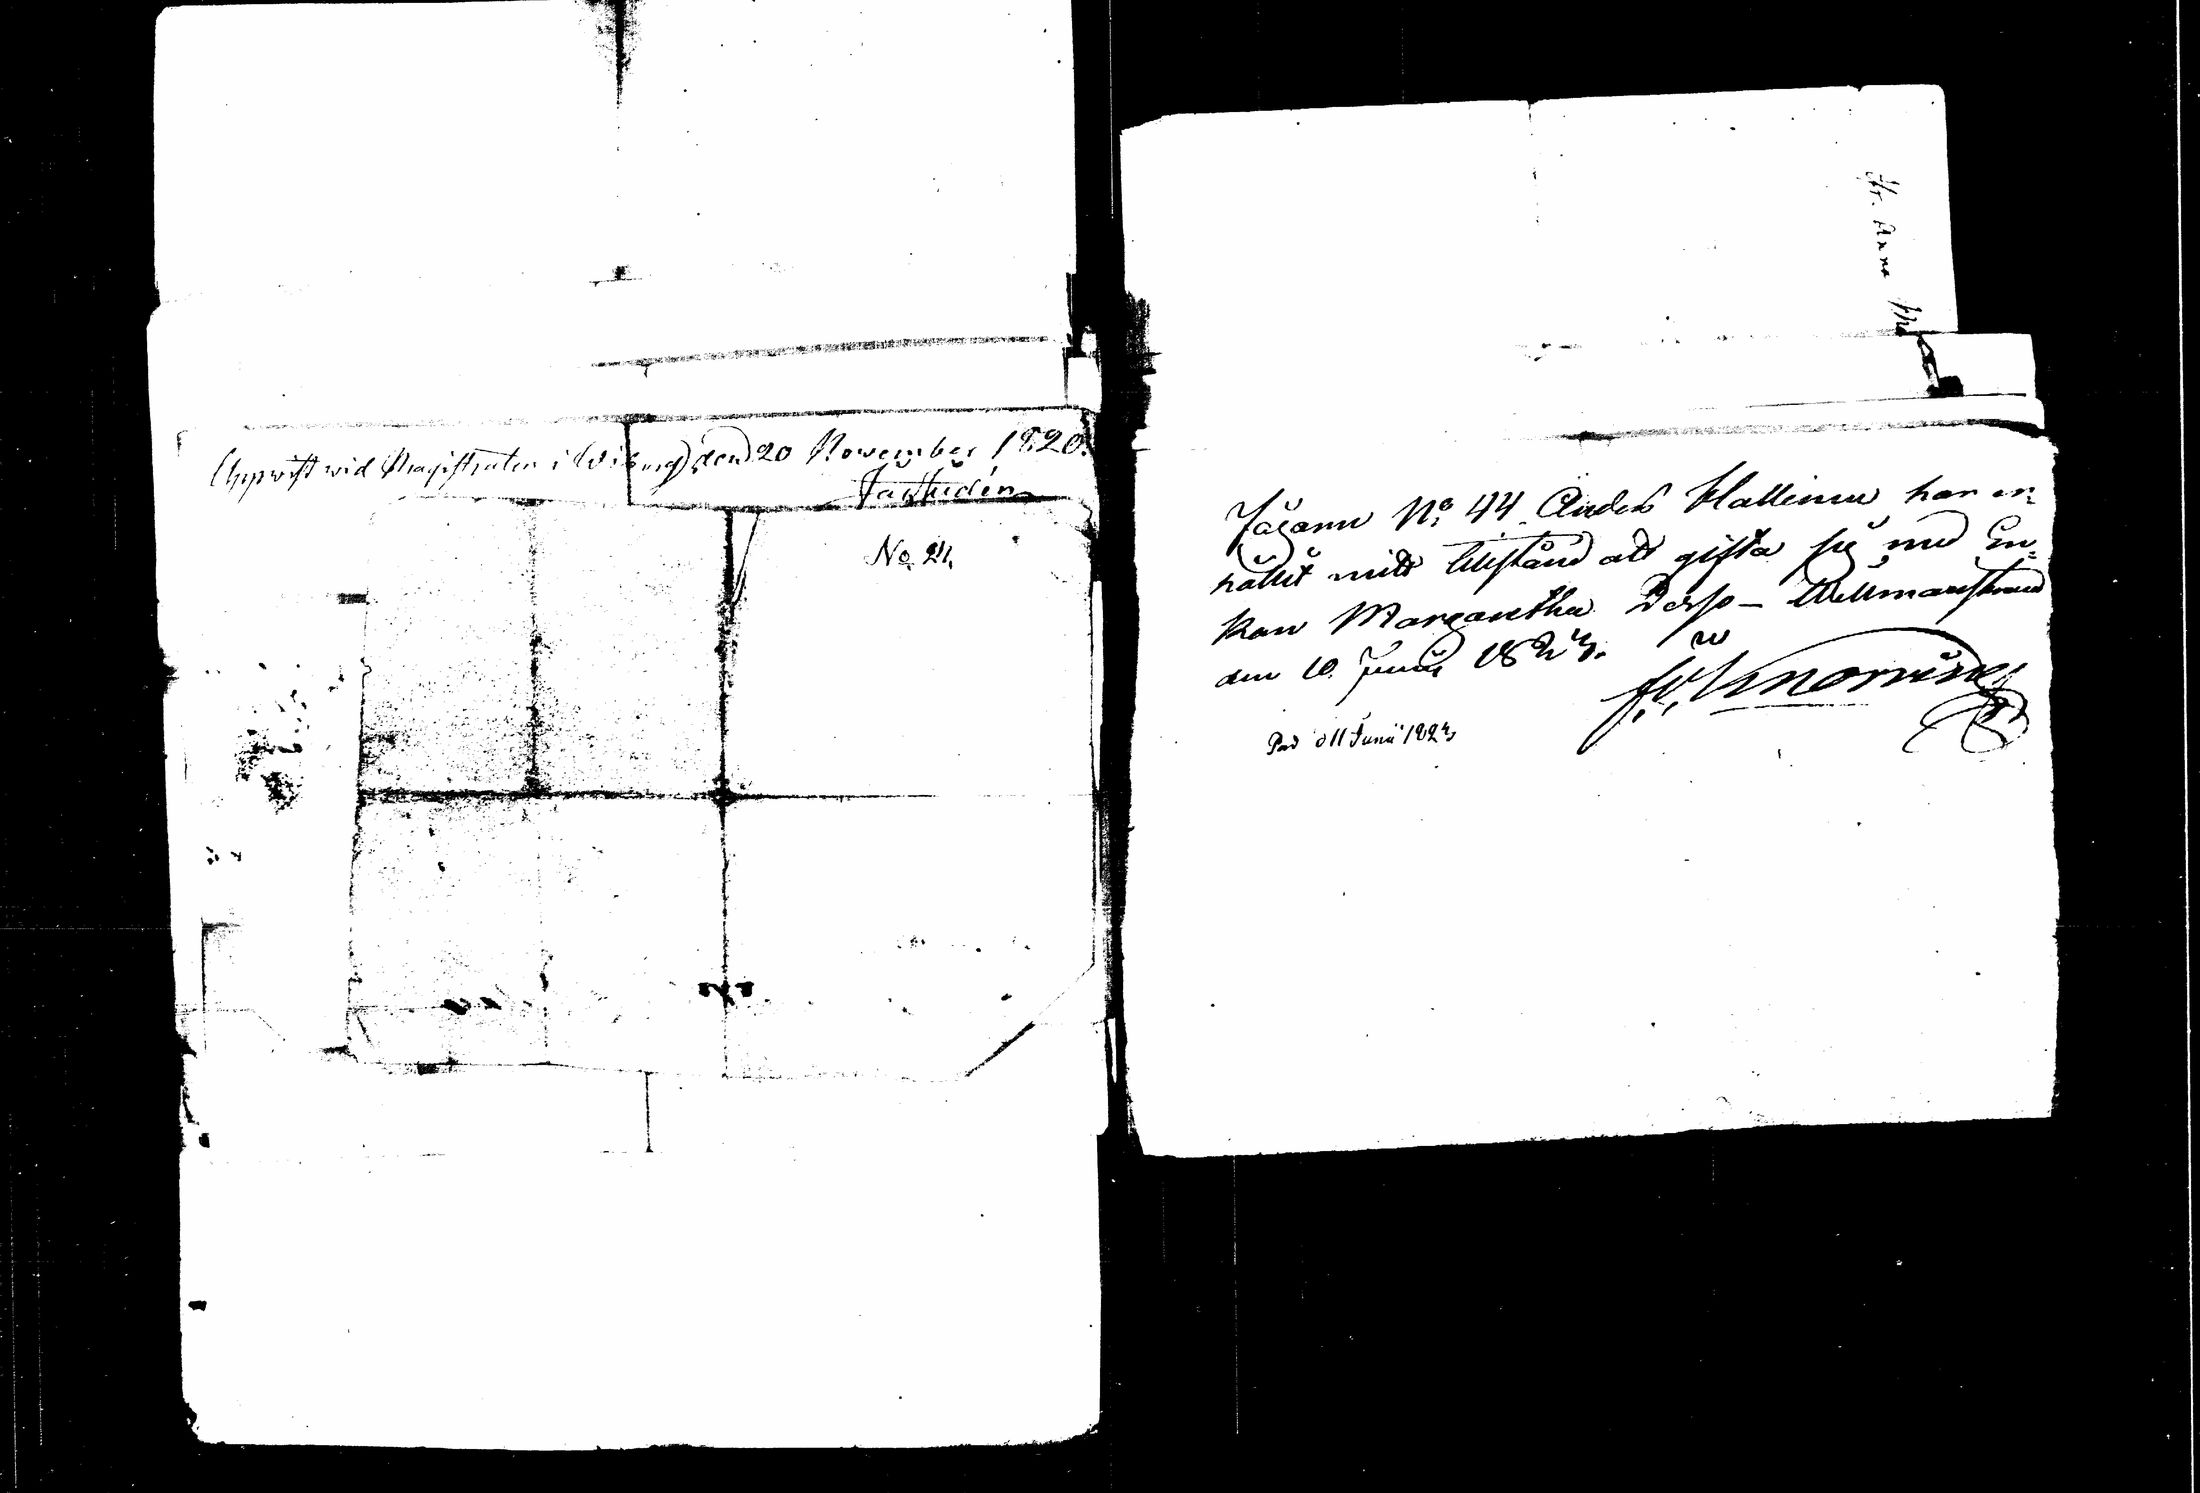 Upwist wid Magistraten i Wiborg den 20 November 1820.
No. 24.
St. Anna
Jägarn No. 44 Anders Hallienu har er-
hållit mitt tillstånd att gifta sig med En-
kan Margaretha Wilmanstrand
den 10. Junii 1823.
Knorring
d 11 Junii 1823